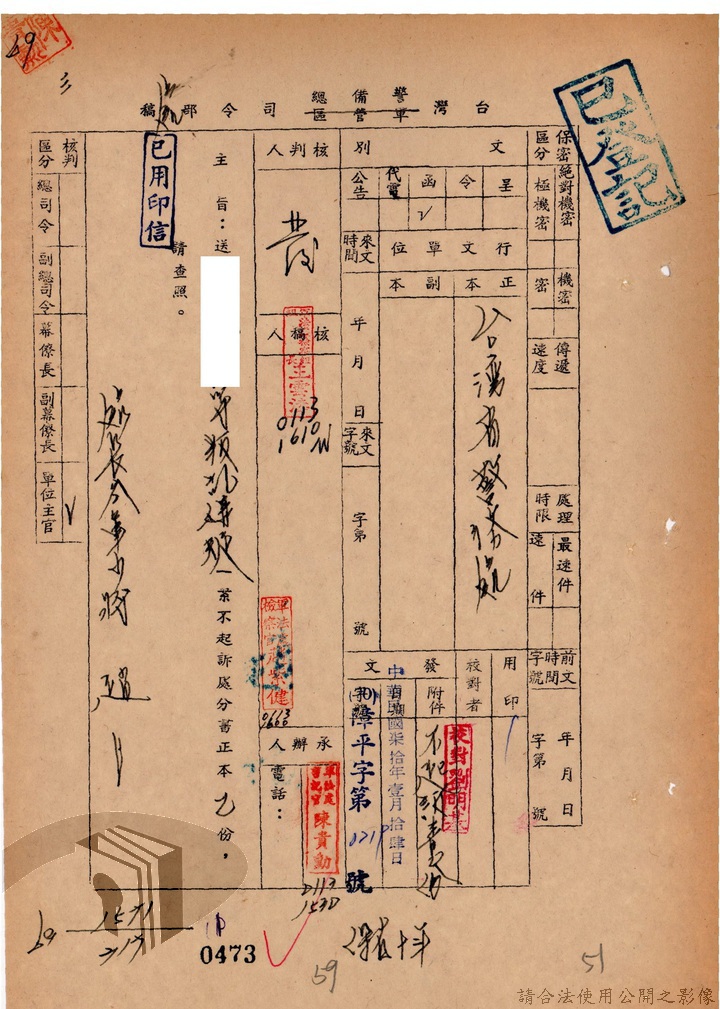 已登記
台灣警備總司令部稿
軍管區
保密區分
絕對機密
極機密
機密
密
傳遞速度
處理時限
最速件
速件
前文時間字號
年月日
字第號
文別
呈
令
函
代電
公告
V
行文單位
正本
副本
台灣省警務處
來文時間
年月日
來文字號
字第號
用印
校對者
校對劉明基
發文
附件
日期
字號
中華民國柒拾年壹月拾肆日
障平字第0219號
核判人
發
核稿人
0113
1610
承辦人
電話：
軍法處書記官陳貴勤
0113
1530
主旨：送
叛亂嫌疑一案不起訴處分書正本乙份，
請查照。
已用印信
處長
核判區分
總司令
副總司令
幕僚長
副幕僚長
單位主官
V
0473
保存十年
1571
59
51
請合法使用公開之影像